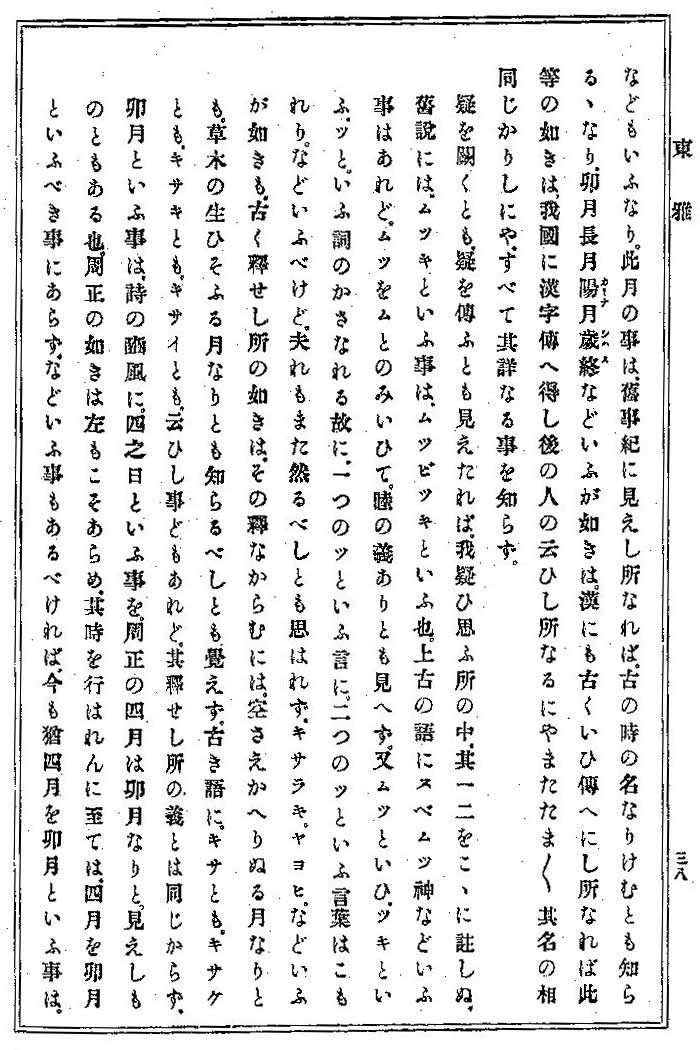 東雅
三八
などもいふなり。此月の事は、舊事紀に見えし所なれば、古の時の名なりけむとも知ら
るゝなり、卯月長月陽月歲終などいふが如きは、漢にも古くいひ傳へにし所なれば此
カーナ シハス
等の如きは、我國に漢字傳へ得し後の人の云ひし所なるにやまたたま〱其名の相
同じかりしにや、すべて其詳なる事を知らず。
疑を闕くとも、疑を傳ふとも見えたれば、我疑ひ思ふ所の中、其一二をこゝに註しぬ、
舊說には、ムツキといふ事は、ムツビツキといふ也。上古の語にスベムツ神などいふ
事はあれど、ムツをムとのみいひて、睦の義ありとも見へず。又ムツといひ、ツキとい
ふ、ツと、いふ詞のかさなれる故に、一つのツといふ言に、二つのツといふ言葉はこも
れり。などいふべけど、夫れもまた然るべしとも思はれず、キサラキ、ヤヨヒ、などいふ
が如きも、古く釋せし所の如きは、その釋なからむには、空さえかへりぬる月なりと
も、草木の生ひそふる月なりとも知らるべしとも覺えず、古き語に、キサとも、キサケ
とも、キサキとも、キサイとも、云ひし事どもあれど、其釋せし所の義とは同じからず、
卯月といふ事は、詩の豳風に、四之日といふ事を、周正の四月は卯月なりと、見えしも
のともある也、周正の如きは左もこそあらめ、其時を行はれんに至ては、四月を卯月
といふべき事にあらず、などいふ事もあるべければ、今も猶四月を卯月といふ事は、